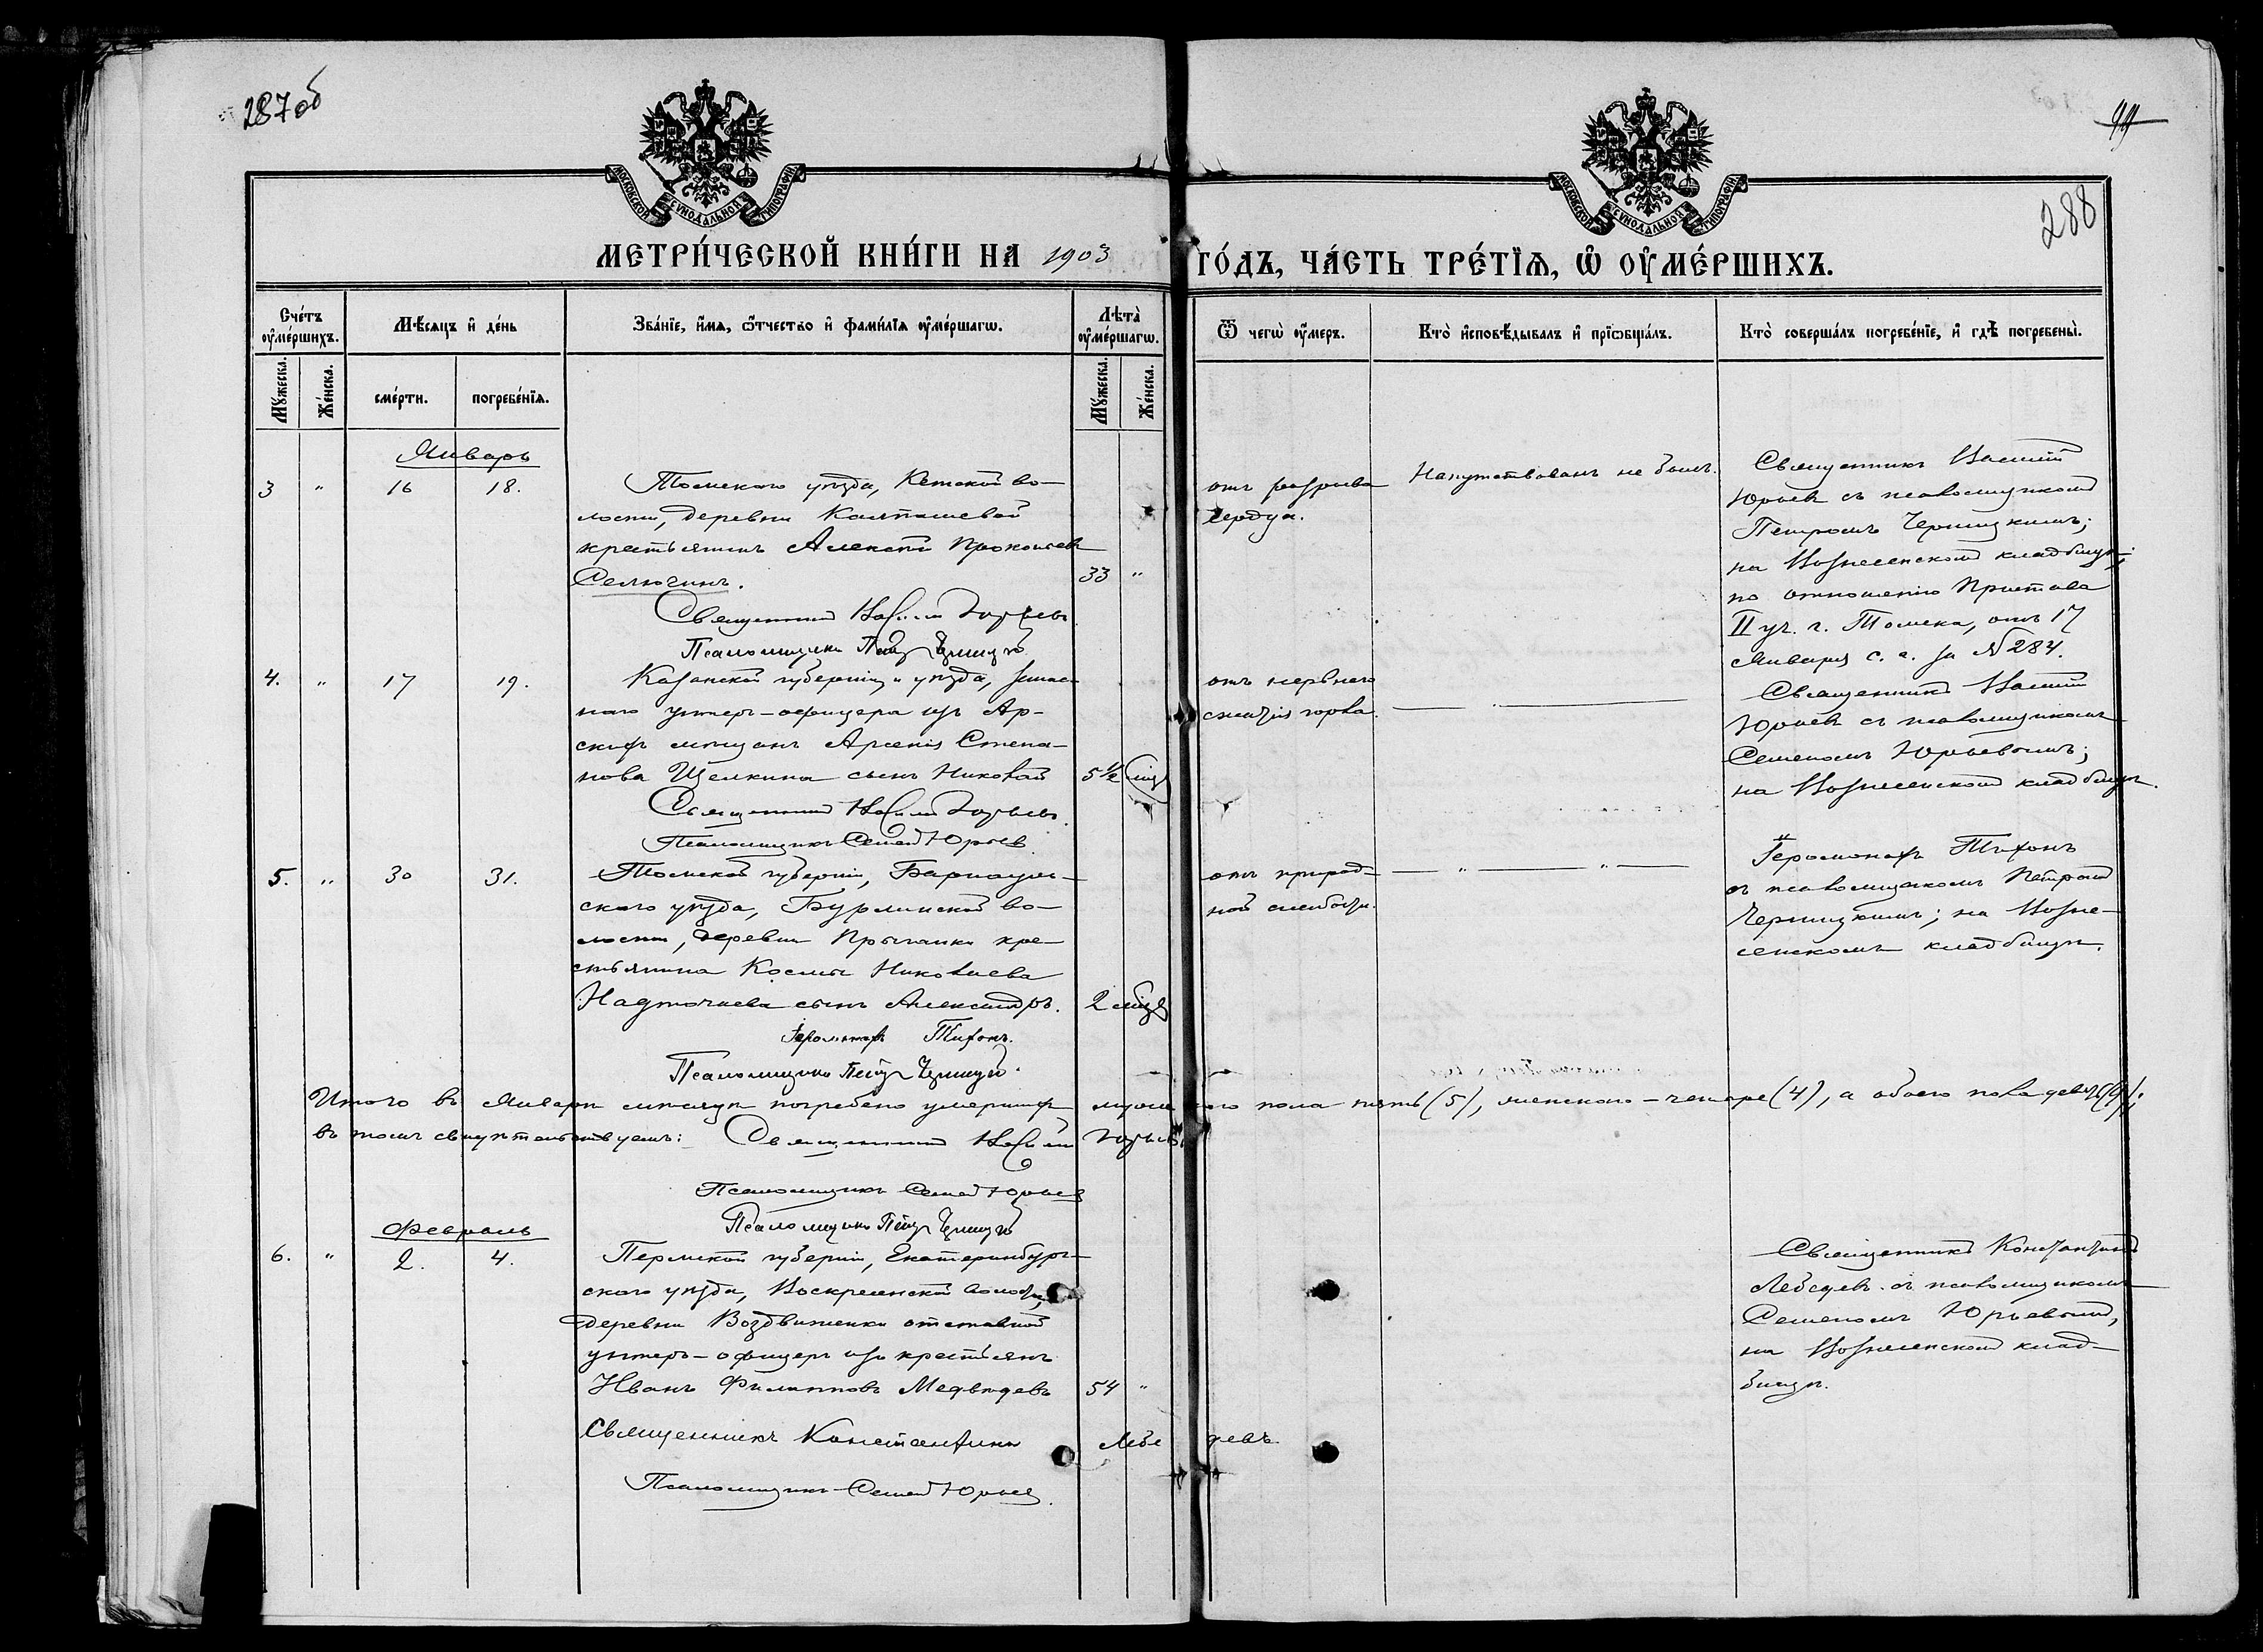 287об
99
288
МОСКОВСКОЙ СУНОДАЛЬНОЙ ТИПОГРАФІИ
МОСКОВСКОЙ СУНОДАЛЬНОЙ ТИПОГРАФІИ
МЕТРИ́ЧЕСКОЙ КНИ́ГИ НА 1903 ГО́ДЪ, ЧА́СТЬ ТРЕ́ТІѦ, Ѡ ОУ҆МЕ́РШИХЪ.
Сче́тъ оу҆ме́ршихъ.
Мꙋ́жеска.
Же́нска.
Мѣ́сяцъ и҆ де́нь
сме́рти.
погребе́нїѧ.
Зва́нїе, и҆́мѧ, ѻ҆́тчество и҆ фами́лїѧ оу҆ме́ршагѡ.
Лѣта̀ оу҆ме́ршагѡ.
Мꙋ́жеска.
Же́нска.
Ѿ чегѡ̀ оу҆́меръ.
Кто̀ и҆сповѣ́дывалъ и҆ прїѡбща́лъ.
Кто̀ соверша́лъ погребе́нїе, и҆ гдѣ̀ погребены̀.
Январь
3 " 16 18.
Томскаго уѣзда, Кетской во-
лости, деревни Колпашевой
крестьянинъ Алексѣй Прокопьевъ
Селюгинъ. 33 "
Священникъ Василій Юрьевъ
Псаломщикъ Петръ
отъ разрыва
сердца.
Напутствованъ не былъ.
Священникъ Василій
Юрьевъ съ псаломщикомъ
Петромъ
на Вознесенскомъ кладбищѣ;
по отношенію Пристава
II уч. г. Томска, отъ 17
Января с. г. за №284.
4. " 17 19.
Казанской губерніи и уѣзда, запас-
наго унтеръ-офицера изъ Ар-
скихъ мѣщанъ Арсенія Степа-
нова Щелкина сынъ Николай 5½ мѣс
Священникъ Василій Юрьевъ.
Псаломщикъ Семенъ Юрьевъ
отъ нервнаго
сжатія горла.
"
Священникъ Василій
Юрьевъ съ псаломщикомъ
Семеномъ Юрьевымъ;
на Вознесенскомъ кладбищѣ.
5. " 30 31.
Томской губерніи, Барнауль-
скаго уѣзда, Бурлинской во-
лости, деревни кре-
стьянина Космы Николаева
Надточаева сынъ Александръ. 2 мѣс
Іеромонахъ Тихонъ.
Псаломщикъ Петръ
отъ природ-
ной слабости.
" "
Іеромонахъ Тихонъ
съ псаломщикомъ Петромъ
на Возне-
сенскомъ кладбищѣ.
Итого въ Январѣ мѣсяцѣ погребено умершихъ мужескаго пола пять (5), женскаго – четыре (4), а обоего пола девять (9);
въ томъ свидѣтельствуемъ: Священникъ Василій Юрьевъ
Псаломщикъ Семенъ Юрьевъ
Псаломщикъ Петръ
Февраль
6. " 2. 4.
Пермской губерніи, Екатеринбург-
скаго уѣзда, Воскресенской волости,
деревни Воздвиженки отставной
унтеръ-офицеръ изъ крестьянъ
Иванъ Филипповъ Медвѣдевъ 54 "
Священникъ Константинъ Лебедевъ.
Псаломщикъ Семенъ Юрьевъ.
Священникъ Константинъ
Лебедевъ съ псаломщикомъ
Семеномъ Юрьевымъ,
на Вознесенскомъ клад-
бищѣ.